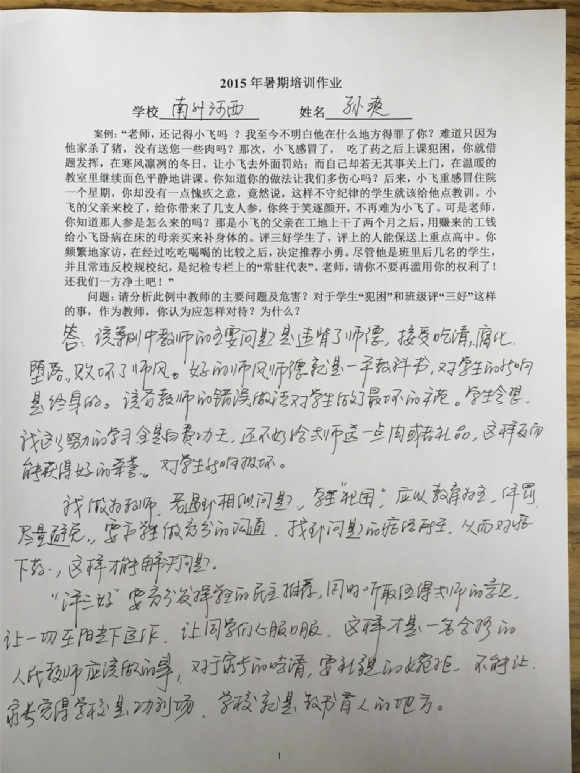 2015 年暑期培训作业
学校 南外河西 姓名 孙爽
案例:“老师,还记得小飞吗 ?我至今不明白他在什么地方得罪了你?难道只因为
他家杀了猪,没有送您一些肉吗?那次,小飞感冒了, 吃了药之后上课犯困,你就借
题发挥,在寒风凛冽的冬日,让小飞去外面罚站;而自己却若无其事关上门,在温暖的
教室里继续面色平静地讲课。你知道你的做法让我们多伤心吗?后来,小飞重感冒住院
一个星期,你却没有一点愧疚之意,竟然说,这样不守纪律的学生就该给他点教训。小
飞的父亲来校了,给你带来了几支人参,你终于笑逐颜开,不再难为小飞了。可是老师,
你知道那人参是怎么来的吗?那是小飞的父亲在工地上干了两个月之后,用赚来的工钱
给小飞卧病在床的母亲买来补身体的。评三好学生了,评上的人能保送上重点高中。你
频繁地家访,在经过吃吃喝喝的比较之后,决定推荐小勇。尽管他是班里后几名的学生,
并且常违反校规校纪,是纪检专栏上的“常驻代表”。老师,请你不要再滥用你的权利了!
还我们一方净土吧!”
问题:请分析此例中教师的主要问题及危害?对于学生“犯困”和班级评“三好”这样
的事,作为教师,你认为应怎样对待?为什么?
答:该案例中教师的主要问题是违背了师德,接受吃请,腐化
堕落,败坏了师风。好的师风师德就是一本教科书,对学生的影响
是终身的。该名教师的错误做法对学生做了最坏的示范。学生会想,
我这么努力的学习全是白费功夫,还不如给老师送一点肉或者礼品,这样反而
能获得好的荣誉。对学生影响极坏。
我做为教师,若遇到相似问题,学生“犯困”,应以教育为主,体罚
尽量避免,要和学生做充分的沟通,找到问题的症结所在,从而对症
下药,这样才能解决问题。
“评三好”要充分发挥学生的民主推荐,同时听取任课老师的意见,
让一切在阳光下运作,让同学们心服口服,这样才是一名合格的
人民教师应该做的事,对于家长的吃请,要礼貌的婉拒,不能让
家长觉得学校是功利场,学校就是教书育人的地方。
1